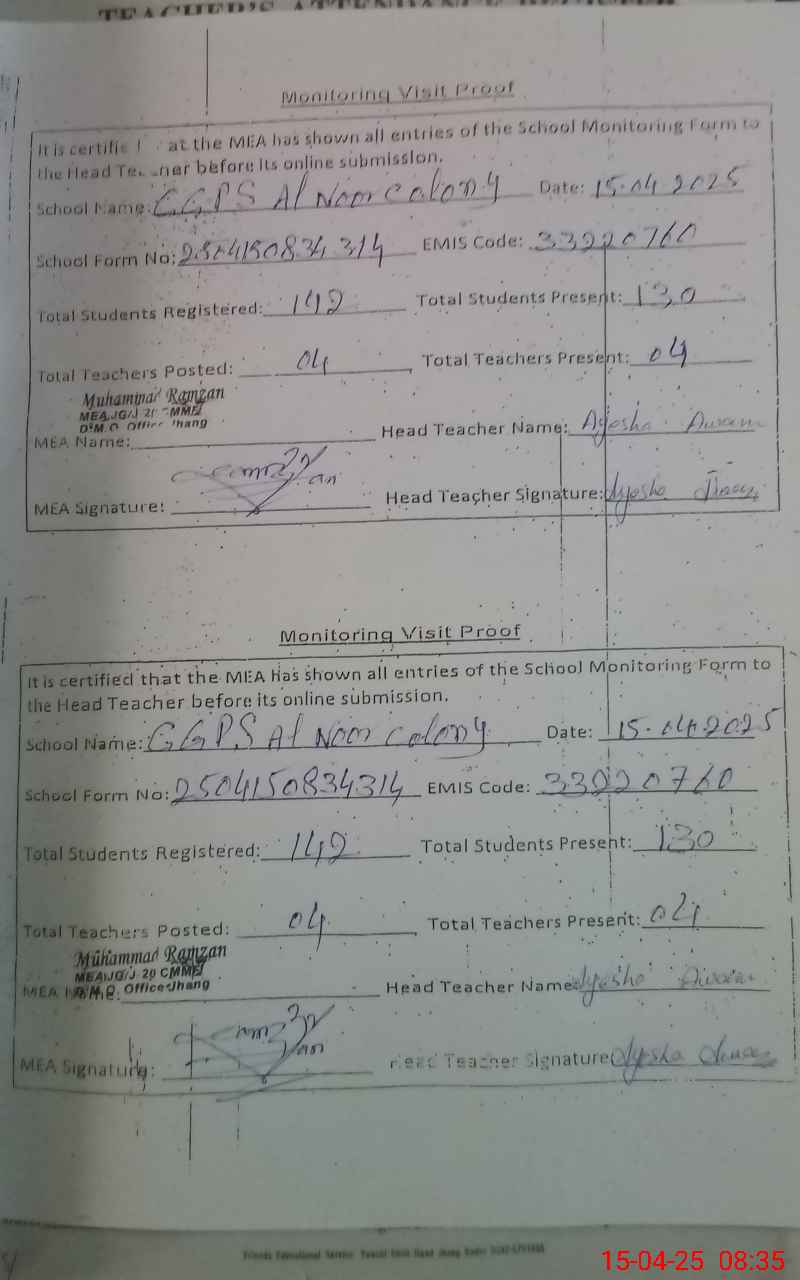 TEACHER'S ATTENDANCE REGISTER
Monitoring Visit Proof
It is certifie at the MEA has shown all entries of the School Monitoring Form to
the Head Te ner before its online submission.
School Name: GGPS Al Noor Colony Date: 15.04.2025
School Form No: 2504150834314 EMIS Code: 33220760
Total Students Registered: 142 Total Students Present: 130
Total Teachers Posted: 04 Total Teachers Present: 04
Muhammad Ramzan
MEA,JG/J 20 CMMF/
D.M.O. Office Jhang
MEA Name: Head Teacher Name: Ayesha
MEA Signature: Head Teacher Signature: Ayesha
Monitoring Visit Proof
It is certified that the MEA has shown all entries of the School Monitoring Form to
the Head Teacher before its online submission.
School Name: GGPS Al Noor Colony Date: 15.04.2025
School Form No: 2504150834314 EMIS Code: 33220760
Total Students Registered: 142 Total Students Present: 130
Total Teachers Posted: 04 Total Teachers Present: 04
Muhammad Ramzan
MEA,JG/J 20 CMMF/
D.M.O. Office Jhang
MEA Name: Head Teacher Name: Ayesha
MEA Signature: Head Teacher Signature: Ayesha
15-04-25 08:35